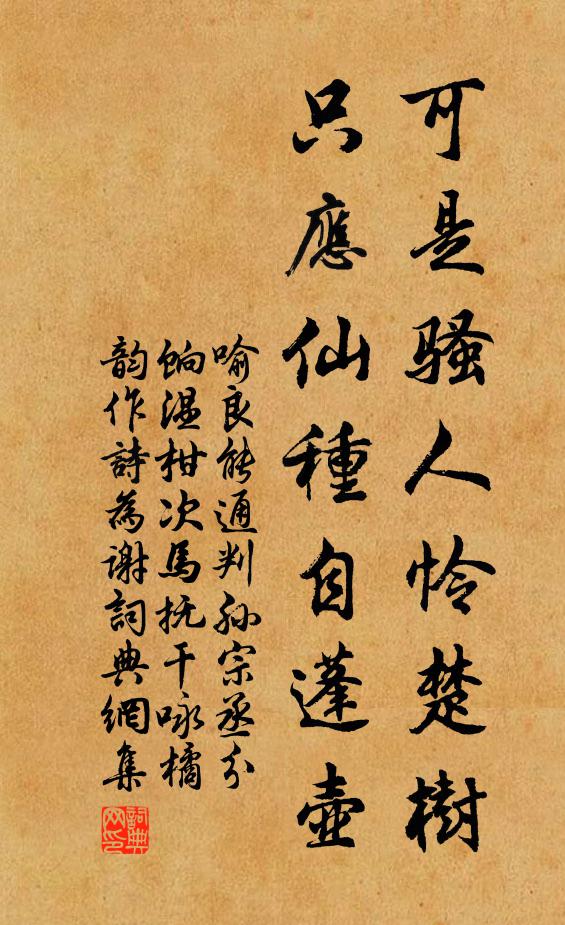 可是騷人怜楚樹
只應仙種自蓬壺
喻良能通判孙宗丞分
餉温柑次馬抚干咏橘
韵作詩為谢詞典網集
詞典网印